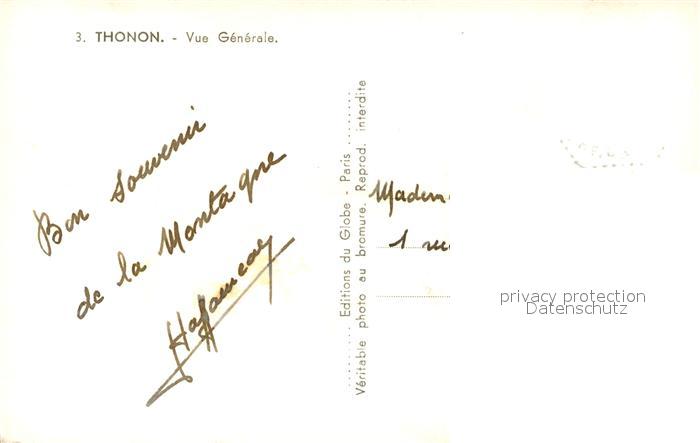 3. THONON. - Vue Générale.
Bon Souvenir
de la Montagne
Editions du Globe - Paris
Véritable photo au bromure. Reprod. interdite
Madem
1 rue
privacy protection
Datenschutz